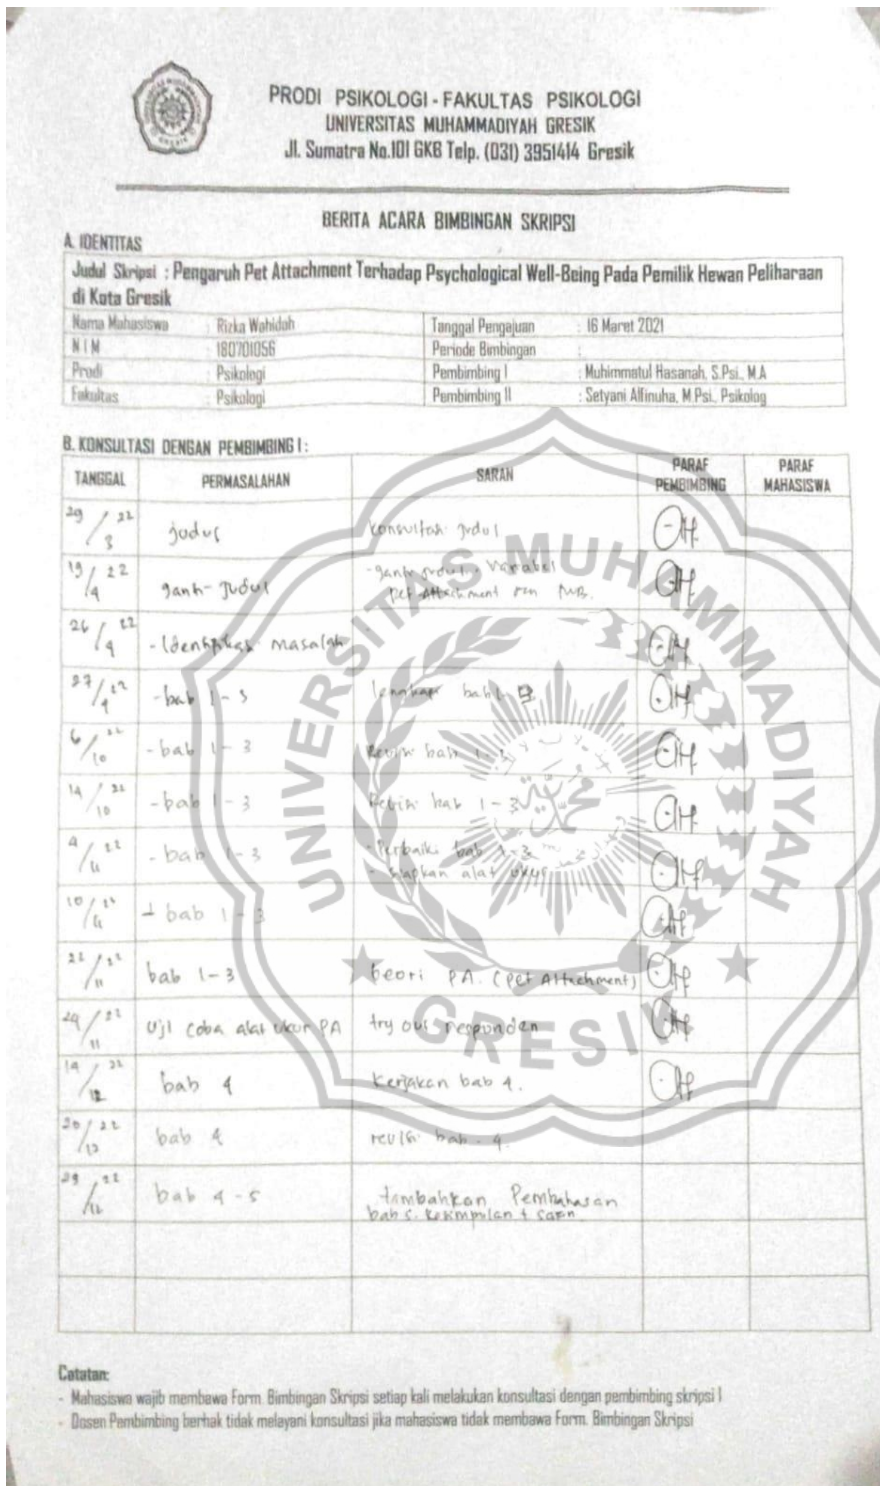 PRODI PSIKOLOGI - FAKULTAS PSIKOLOGI
UNIVERSITAS MUHAMMADIYAH GRESIK
Jl. Sumatra No.101 GKB Telp. (031) 3951414 Gresik
BERITA ACARA BIMBINGAN SKRIPSI
A. IDENTITAS
Judul Skripsi : Pengaruh Pet Attachment Terhadap Psychological Well-Being Pada Pemilik Hewan Peliharaan
di Kota Gresik
Nama Mahasiswa : Rizka Wahidah Tanggal Pengajuan : 16 Maret 2021
N I M : 180701056 Periode Bimbingan :
Prodi : Psikologi Pembimbing I : Muhimmatul Hasanah, S.Psi., M.A
Fakultas : Psikologi Pembimbing II : Setyani Alfinuha, M.Psi., Psikolog
B. KONSULTASI DENGAN PEMBIMBING I :
TANGGAL PERMASALAHAN SARAN PARAF PEMBIMBING PARAF MAHASISWA
29/3 22 judul konsultasi judul
19/4 22 ganti judul - ganti judul, variabel
pet Attachment dan PWB.
26/4 22 - Identifikasi masalah
27/9 22 - bab 1-3 lengkapi bab 1
6/10 22 - bab 1-3 Revisi bab
14/10 22 - bab 1-3 Revisi bab 1-3
4/11 22 - bab 1-3 - Perbaiki bab 1-3
- siapkan alat ukur
10/11 22 bab 1-3
22/11 22 bab 1-3 teori PA. (Pet Attachment)
29/11 22 Uji coba alat ukur PA try out responden
14/12 22 bab 4 Kerjakan bab 4.
20/12 22 bab 4 revisi bab 4
29/12 22 bab 4-5 tambahkan Pembahasan
bab 5. kesimpulan + saran
UNIVERSITAS MUHAMMADIYAH
GRESIK
Catatan:
- Mahasiswa wajib membawa Form. Bimbingan Skripsi setiap kali melakukan konsultasi dengan pembimbing skripsi I
- Dosen Pembimbing berhak tidak melayani konsultasi jika mahasiswa tidak membawa Form. Bimbingan Skripsi